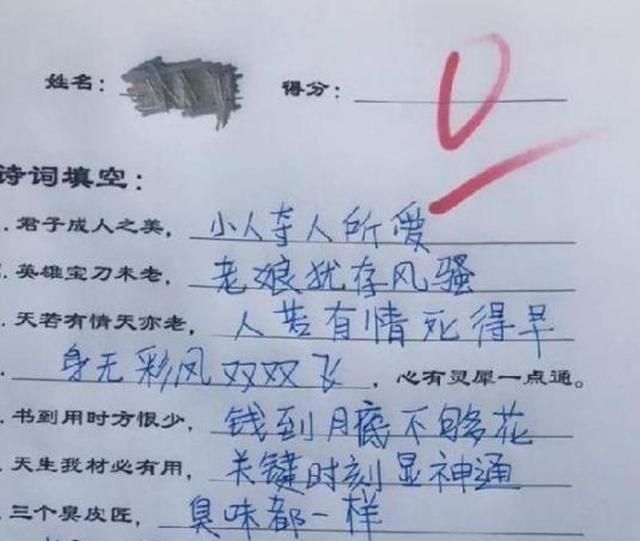 姓名： 得分： 0
诗词填空：
. 君子成人之美， 小人夺人所爱
. 英雄宝刀未老， 老娘犹存风骚
. 天若有情天亦老， 人若有情死得早
. 身无彩凤双双飞 ，心有灵犀一点通。
. 书到用时方恨少， 钱到月底不够花
. 天生我材必有用， 关键时刻显神通
. 三个臭皮匠， 臭味都一样